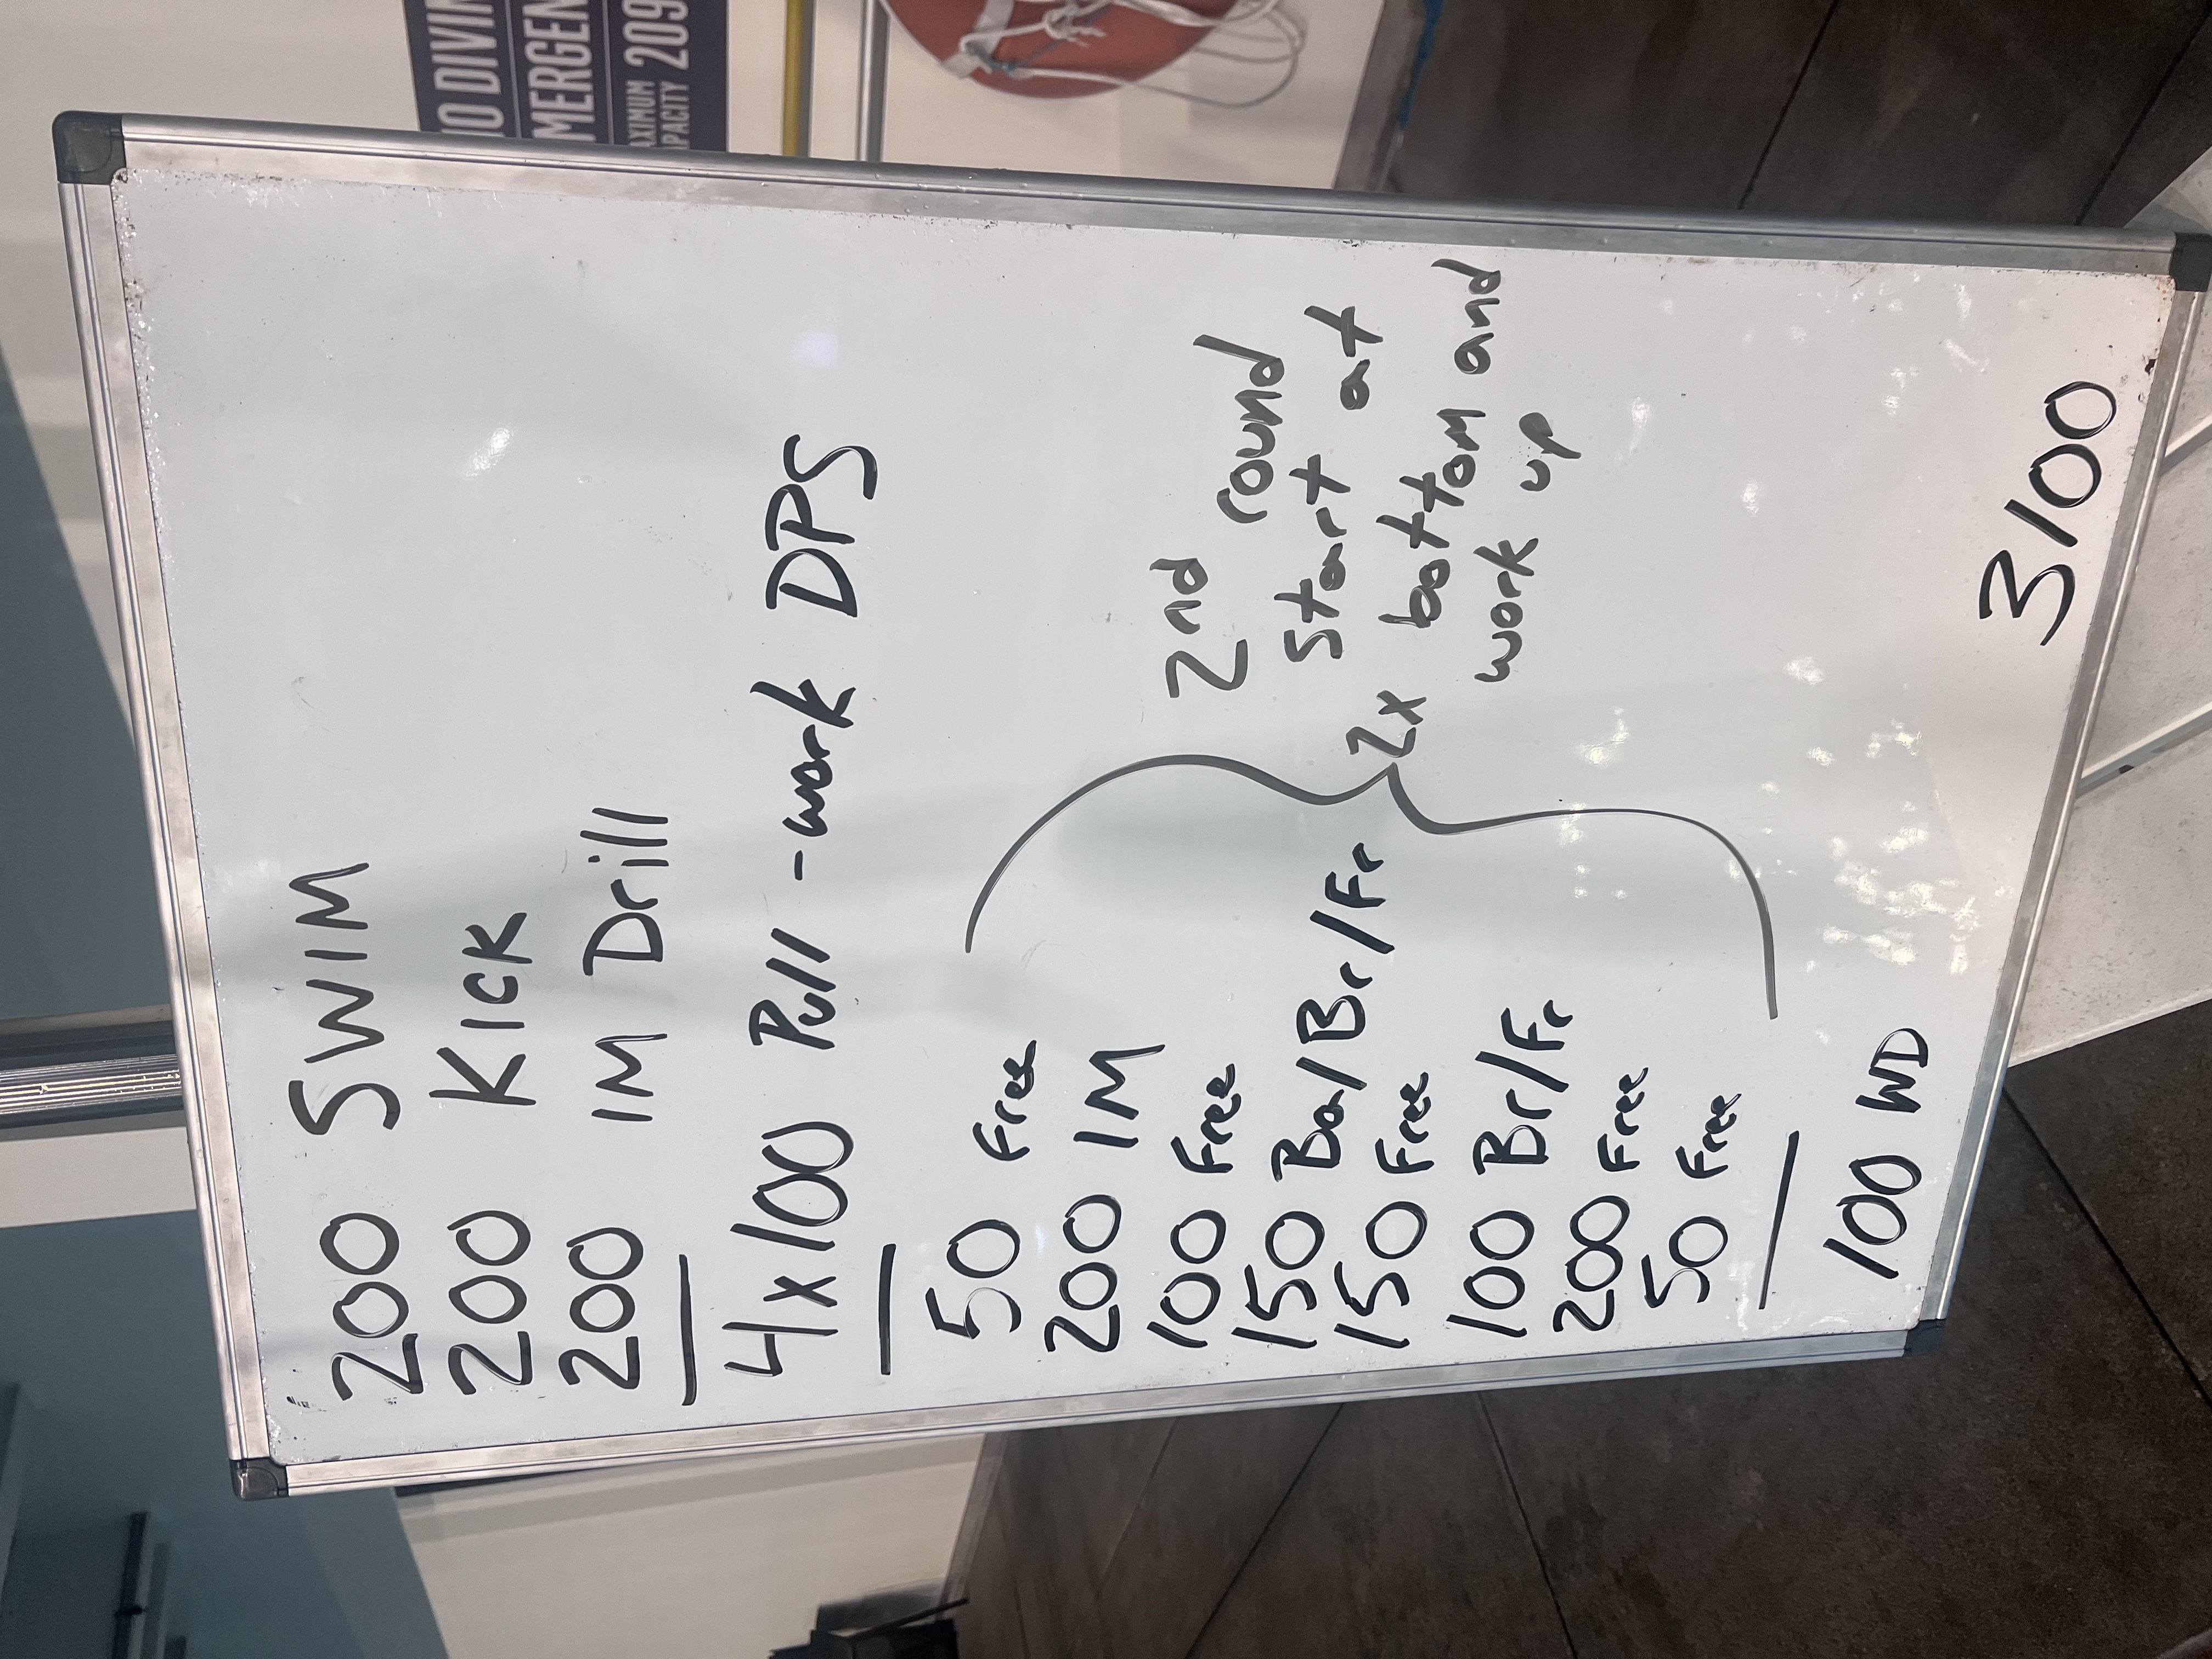 200 SWIM
200 KICK
200 IM Drill
4x100 Pull - work DPS
50 Free
200 IM
100 Free
150 Ba/Br/Fr
150 Free
100 Br/Fr
200 Free
50 Free
2x
2nd round
Start at
bottom and
work up
100 WD
3100
MAXIMUM 209